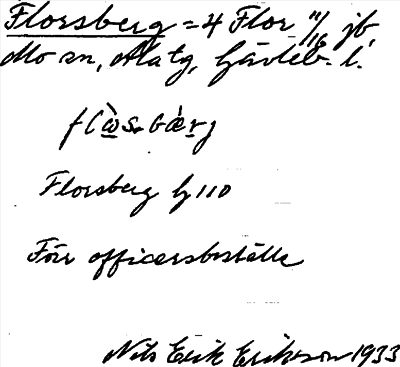 Florsberg = 4 Flor 11/16 jb
Mo sn, Ala tg, Gävleb. l.
Florsberg G 110
Förr officersboställe
Nils Erik Eriksson 1933